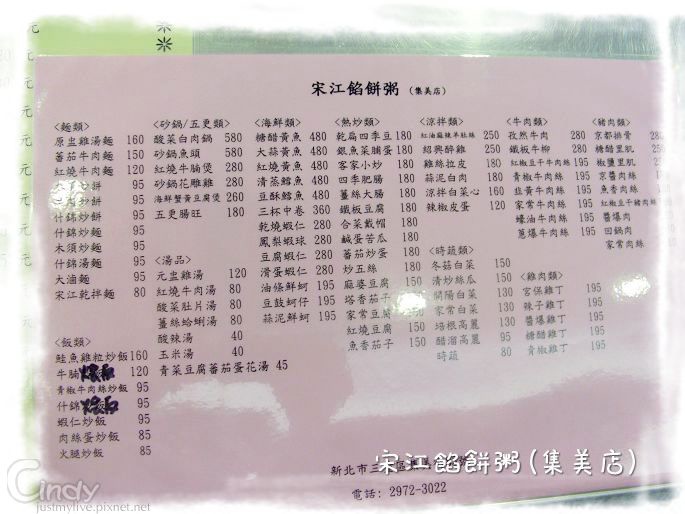 宋江餡餅粥 (集美店)
<麵類>
原盅雞湯麵 160
蕃茄牛肉麵 150
紅燒牛肉麵 120
炒餅 95
炒餅 95
什錦炒餅 95
什錦炒麵 95
木須炒麵 95
什錦湯麵 95
大滷麵 95
宋江乾拌麵 80
<飯類>
鮭魚雞粒炒飯 160
牛腩燴飯 120
青椒牛肉絲炒飯 95
什錦燴飯 95
蝦仁炒飯 95
肉絲蛋炒飯 85
火腿炒飯 85
<砂鍋/五更類>
酸菜白肉鍋 580
砂鍋魚頭 580
紅燒牛腩煲 280
砂鍋花雕雞 280
海鮮蟹黃豆腐煲 260
五更腸旺 180
<湯品>
元盅雞湯 120
紅燒牛肉湯 80
酸菜肚片湯 80
薑絲蛤蜊湯 80
酸辣湯 40
玉米湯 40
青菜豆腐蕃茄蛋花湯 45
<海鮮類>
糖醋黃魚 480
大蒜黃魚 480
紅燒黃魚 480
清蒸鱈魚 480
豆酥鱈魚 480
三杯中卷 360
乾燒蝦仁 280
鳳梨蝦球 280
豆腐蝦仁 280
滑蛋蝦仁 280
油條鮮蚵 195
豆鼓蚵仔 195
蒜泥鮮蚵 195
<熱炒類>
乾扁四季豆 180
銀魚菜脯蛋 180
客家小炒 180
四季肥腸 180
薑絲大腸 180
鐵板豆腐 180
合菜戴帽 180
鹹蛋苦瓜 180
蕃茄炒蛋 180
炒五絲 180
麻婆豆腐 150
塔香茄子 150
家常豆腐 150
紅燒豆腐 150
魚香茄子 150
<涼拌類>
紅油麻辣羊肚絲 250
紹興醉雞 250
雞絲拉皮 180
蒜泥白肉 180
涼拌白菜心 160
辣椒皮蛋 120
<時蔬類>
冬菇白菜 150
清炒絲瓜 150
開陽白菜 130
家常白菜 130
培根高麗 150
醋溜高麗 95
時蔬 80
<牛肉類>
孜然牛肉 280
鐵板牛柳 280
紅椒豆干牛肉絲 195
青椒牛肉絲 195
韭黃牛肉絲 195
家常牛肉絲 195
蠔油牛肉絲 195
蔥爆牛肉絲 195
<雞肉類>
宮保雞丁 195
辣子雞丁 195
醬爆雞丁 195
糖醋雞丁 195
青椒雞丁 195
<豬肉類>
京都排骨
糖醋里肌
椒鹽里肌
京醬肉絲
魚香肉絲
紅椒豆干豬肉絲
醬爆肉
回鍋肉
家常肉絲
新北市三
電話: 2972-3022
宋江餡餅粥(集美店)
Cindy
justmylive.pixnet.net